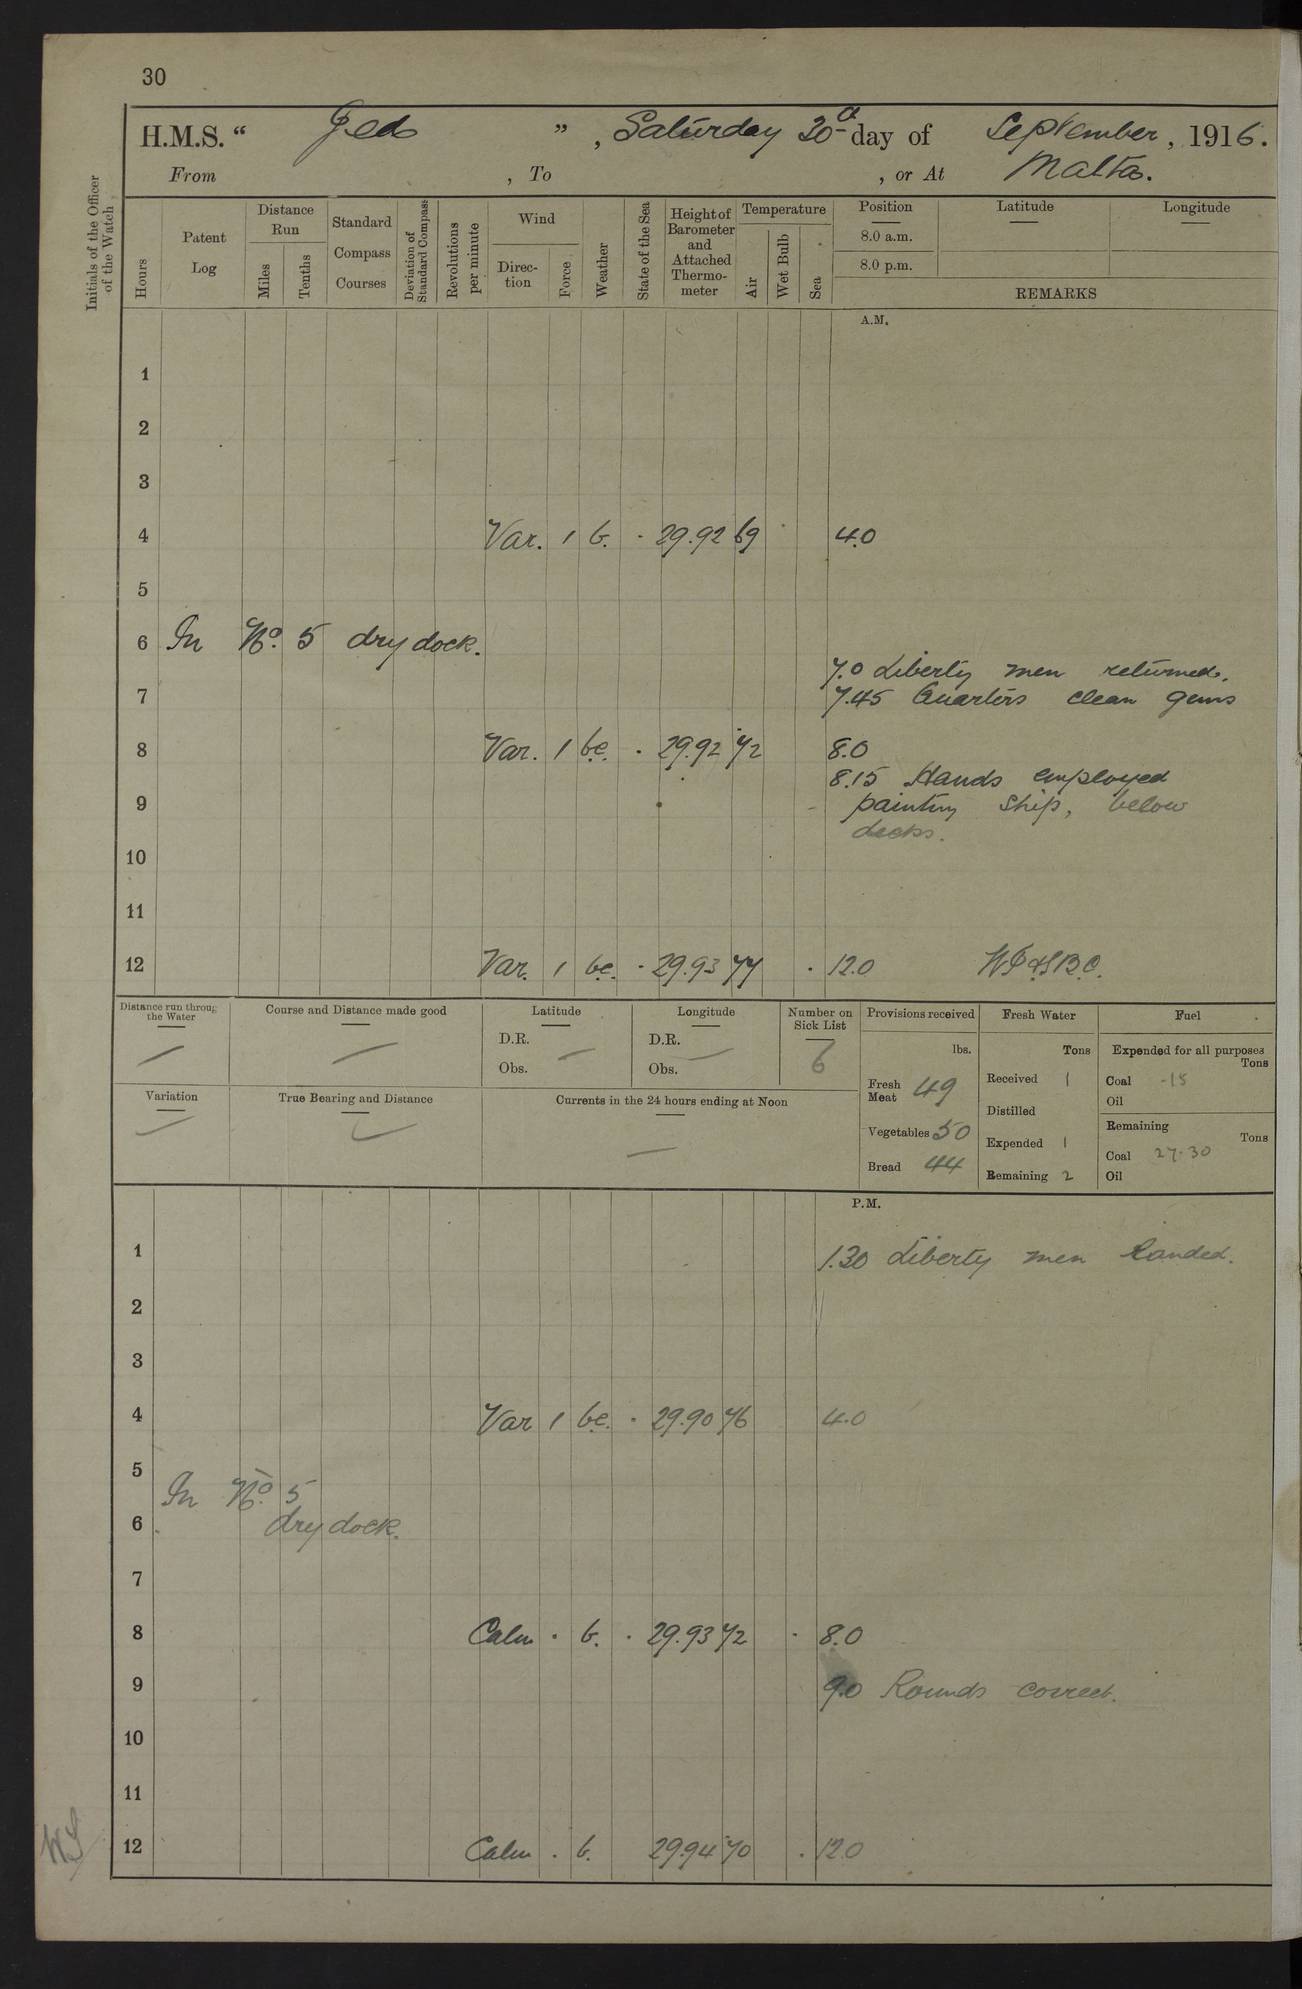 30
H.M.S. " Jed " , Saturday 30th day of September, 1916.
From , To , or At Malta.
Initials of the Officer of the Watch
Hours
Patent Log
Distance Run
Miles
Tenths
Standard Compass Courses
Deviation of Standard Compass
Revolutions per minute
Wind
Direc-tion
Force
Weather
State of the Sea
Height of Barometer and Attached Thermo-meter
Temperature
Air
Wet Bulb
Sea
Position
8.0 a.m.
8.0 p.m.
Latitude
Longitude
REMARKS
A.M.
1
2
3
4 Var. 1 b. · 29.92 69 4.0
5
6 In No. 5 dry dock.
7.0 Liberty men returned.
7 7.45 Quarters clean guns
8 Var. 1 bc. · 29.92 72 8.0
8.15 Hands employed
9 painting ship, below
decks.
10
11
12 Var. 1 bc. · 29.93 77 · 12.0
Distance run through the Water
Course and Distance made good
Latitude
D.R.
Obs.
Longitude
D.R.
Obs.
Number on Sick List
6
Variation
True Bearing and Distance
Currents in the 24 hours ending at Noon
Provisions received
lbs.
Fresh Meat 49
Vegetables 50
Bread 44
Fresh Water
Tons
Received 1
Distilled
Expended 1
Remaining 2
Fuel
Expended for all purposes
Tons
Coal ·15
Oil
Remaining
Tons
Coal 27·30
Oil
P.M.
1 1.30 Liberty men landed.
2
3
4 Var 1 bc. · 29.90 76 4.0
5
In No. 5
6 dry dock.
7
8 Calm · b. · 29.93 72 · 8.0
9 9.0 Rounds correct.
10
11
12 Calm · b. 29.94 70 · 12.0